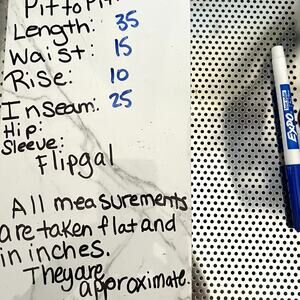 Pit to Pit:
Length: 35
Waist: 15
Rise: 10
Inseam: 25
Hip:
Sleeve:
Flipgal
All measurements
are taken flat and
in inches.
They are
approximate.
EXPO